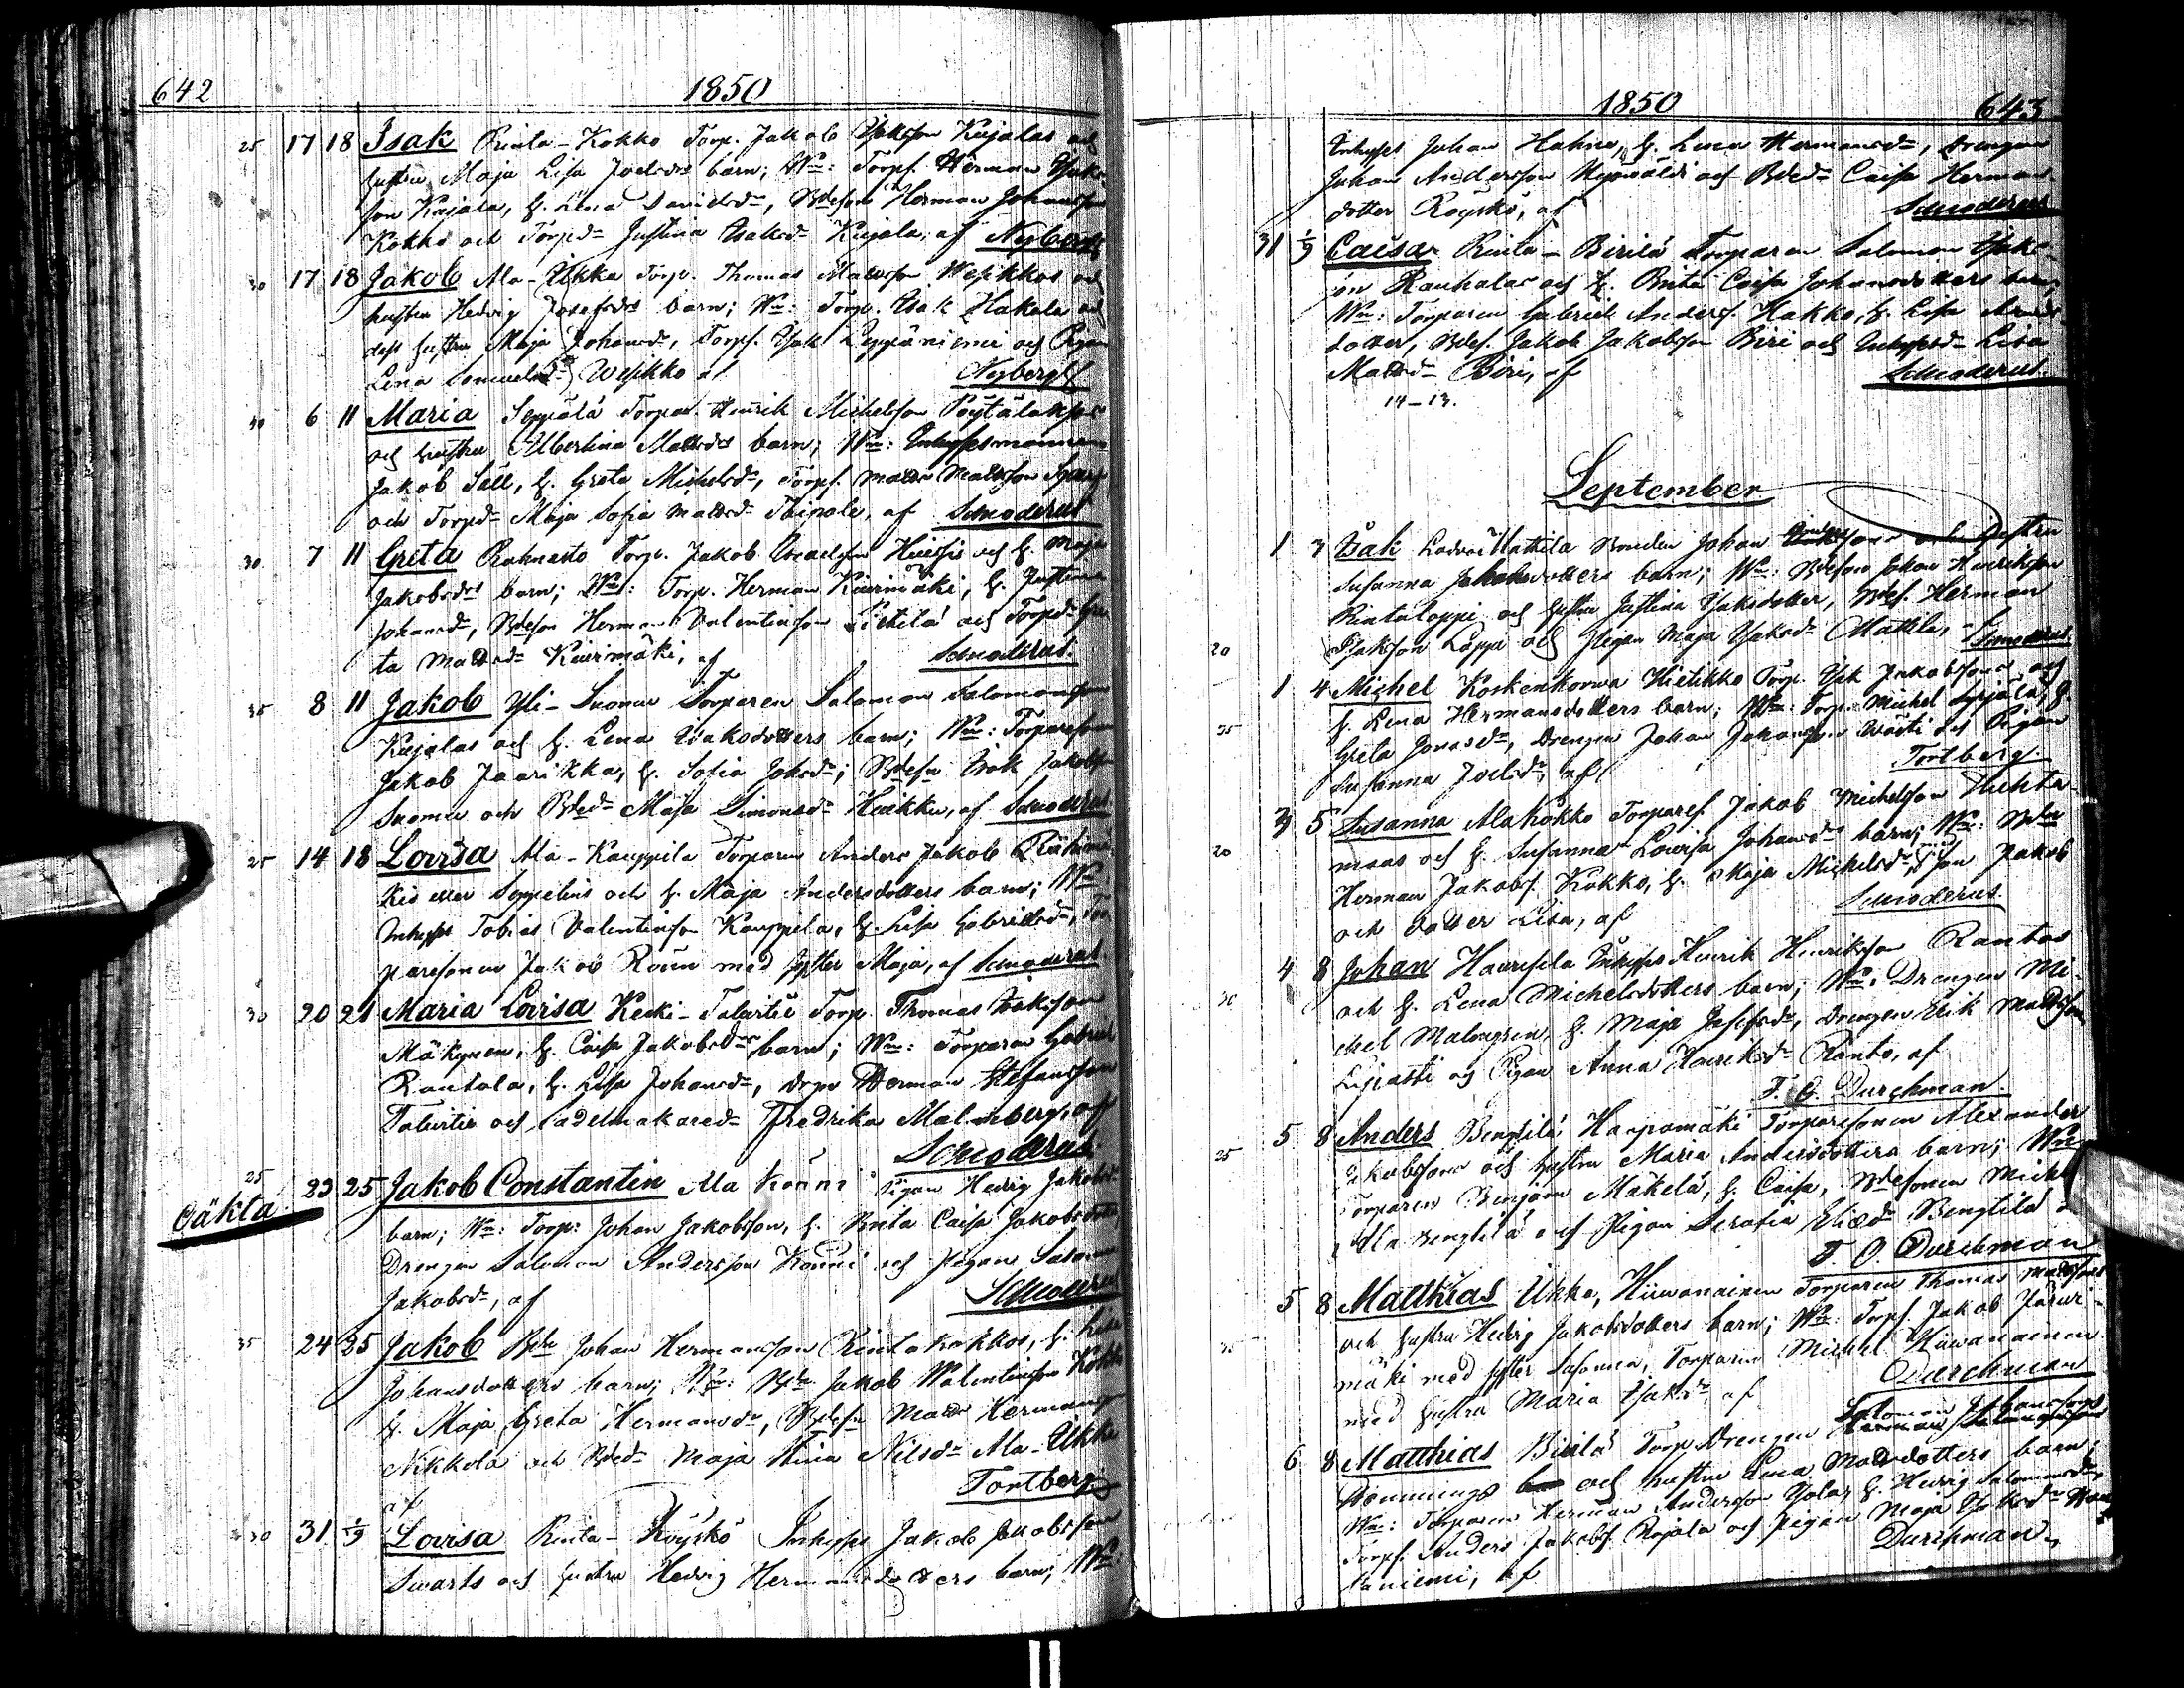 642
1850
25 17 18 Isak Rinta-Kokko Torp. Jakob Isaksson Kujalas och
hustru Maja Lisa Joelsdrs barn; Wn: Torpf. Herman Isaks
son Kujala, h. Lena Davidsdr, Bdeson Herman Johansson
Kokko och Torpdr Justina Isaksdr Kujala, af Nyberg
30 17 18 Jakob Ala-Ukko Torp. Thomas Mattsson Wesikkos och
hustru Hedvig Josefsdrs barn; Wn: Torp. Isak Hakala och
dess hustru Maja Johansdr, Torpf. Isak Leppäniemi och Pigan
Lena Samuelsdr Wesikko af Nyberg
40 6 11 Maria Seppälä Torpar. Henrik Michelsson
och hustru Albertina Mattsdrs barn; Wn: Inhysesmannen
Jakob Säll, h. Greta Michelsdr, Torpf. Matts Mattsson
och Torpdr Maja Sofia Mattsdr Taipale, af Schroderus
30 7 11 Greta Rahnasto Torp. Jakob Israelsson och h. Maja
Jakobsdrs barn; Wn: Torp. Herman Kiurimäki, h. Justina
Johansdr, Bdeson Herman Valentinsson Pirtilä och Torpdr Gre
ta Mattsdr Kiurimäki, af Schroderus.
35 8 11 Jakob Yli-Luoma Torparen Salomon Salomonsson
Kujalas och h. Lena Isaksdotters barn; Wn: Torparesonen
Jakob Jaarikka, h. Sofia Johsdr; Bdesn Isak Jakobsson
Luoma och Bdedr Maja Simonsdr Heikku, af Schroderus
25 14 18 Lovisa Ala-Kauppila Torparen Anders Jakob
kis eller Soppelius och h. Maja Andersdotters barn; Wn
Inhyses Tobias Valentinsson Kauppila, h. Lisa Gabrielsdr, Tor
paresonen Jakob Rouu med syster Maja, af Schroderus
30 20 21 Maria Lovisa Keski-Talvitie Torp. Thomas Isaksson
Mäkynen, h. Caisa Jakobsdrs barn; Wn: Torparen Gabriel
Rantala, h. Lisa Johansdr, drgn Herman Stefansson
Talvitie och Sadelmakaredr Fredrika Malmberg, af
Schroderus
25 23 25 Jakob Constantin Ala Könni Pigan Hedvig Jakobsd
Oäkta
barn; Wn: Torp: Johan Jakobsson, h. Brita Caisa Jakobsdotter
Drengen Salomon Andersson Könni och Pigan
Jakobsdr, af Schroderus
35 24 25 Jakob Bde Johan Hermansson Rintakokkos, h. Lisa
Johansdotters barn; Wn: Bde Jakob Walentinsson Kokko
h. Maja Greta Hermansdr, Bdesn Matts Hermansson
Nikkola och Bdedr Maja Stina Nilsdr Ala-Ukko
af Fortberg
30 31 1/9 Lovisa Rinta-Röyskö Inhyses Jakob Jakobsson
Swarts och hustru Hedvig Hermansdotters barn; Wn
1850
643
Inhyses Johan Hahne, h. Lena Hermansdr, Drengen
Johan Andersson och Bdedr Caisa Hermans
dotter Röyskö, af Schroderus
31 1/9 Caisa Rinta-Birilä Torparen Salomon Isaks
son Rauhalas och h. Brita Caisa Johansdotters barn;
Wn: Torparen Gabriel Andersf. Hakko, h. Lisa
dotter, Bdes. Jakob Jakobsson Biri och Inhysesdr Lisa
Mattsdr Biri, af Schroderus.
14-13.
September
1 3 Isak Mattila Bonden Johan och hustru
Susanna Jakobsdotters barn; Wn: Bdeson Johan Henriksson
Rintaloppi och hustru Justina Isaksdotter, Bdes. Herman
20 Isaksson Loppi och Pigan Maja Isaksdr Mattila, af Schroderus
1 4 Michel Koskenkorwa Hietikko Torp. Isak Jakobssons och
35 h. Lena Hermansdotters barn; Wn: Torp. Michel h.
Greta Jonasdr, Drengen Johan Johansson och Pigan
Susanna Joelsdr, af Fortberg
3 5 Susanna Alakokko Torparef. Jakob Michelsson Huhta
20 maas och h. Susanna Lovisa Johansdrs barn; Wn: Bden
Herman Jakobs. Kokko, h. Maja Michelsdr, son Jakob
och dotter Lisa, af Schroderus
4 8 Johan Inhyses Henrik Henriksson Rantas
30 och h. Lena Michelsdotters barn; Wn: Drengen Mi-
chel Malmgren, h. Maja Josefsdr, Drengen Erik Mattsson
och Pigan Anna Henriksdr Ranto, af
F. O. Durchman.
5 8 Anders Bengtilä, Haapamäki Torparesonen Alexander
25 Jakobssons och hustru Maria Andersdotters barn; Wn
Torparen Benjam Mäkelä, h. Caisa, Bdesonen Michel
Ala Bengtilä och Pigan Serafia Eliædr Bengtilä af
F. O. Durchman
5 8 Matthias Ukko, Hiiwanainen Torparen Thomas Mattssons
35 och hustru Hedvig Jakobsdotters barn; Wn: Torpf. Jakob
mäki med syster Susanna, Torparen Michel Hiiwanainen
med hustru Maria Isaksdr, af Durchman
Salomon Johanssons
6 8 Matthias Birilä Torp.Drengen
Rönnings och hustru Lena Mattsdotters barn;
Wn: Torparen Herman Andersson h. Hedvig Salomonsdr,
Torpf. Anders Jakobs. Rajala och Pigan Maja Isaksdr
niemi, af Durchman